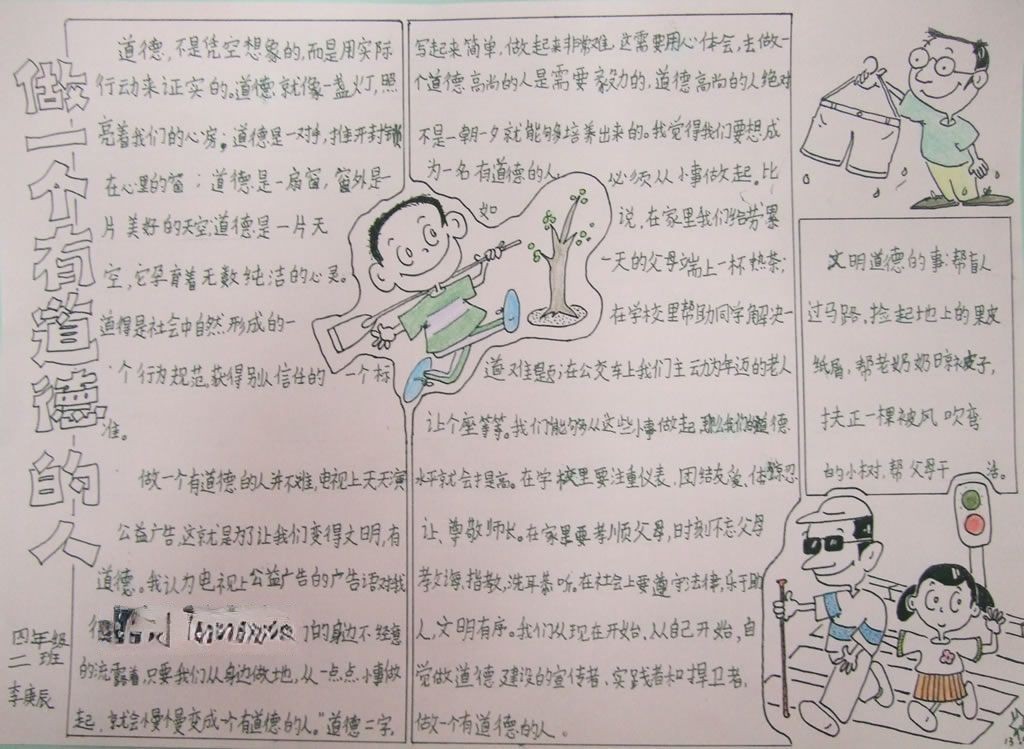 做一个有道德的人
四年级
二班
李庚辰
道德,不是凭空想象的,而是用实际
行动来证实的。道德就像一盏灯,照
亮着我们的心房;道德是一对手,推开封锁
在心里的窗;道德是一扇窗,窗外是一
片美好的天空,道德是一片天
空,它孕育着无数纯洁的心灵。
道得是社会中自然形成的一
个行为规范,获得别人信任的一个标
准。
做一个有道德的人并不难,电视上天天演
公益广告,这就是为了让我们变得文明,有
道德。我认为电视上公益广告的广告语对我
很
的身边不经意
的流露着,只要我们从身边做地,从一点点小事做
起,就会慢慢变成一个有道德的人。"道德二字,
写起来简单,做起来非常难,这需要用心体会,去做一
个道德高尚的人是需要毅力的,道德高尚的人绝对
不是一朝一夕就能够培养出来的。我觉得我们要想成
为一名有道德的人,必须从小事做起。比
如说,在家里我们给劳累
一天的父母端上一杯热茶;
在学校里帮助同学解决一
道难题;在公交车上我们主动为年迈的老人
让个座等等。我们能够从这些小事做起,那么我们的道德
水平就会提高。在学校里要注重仪表、团结友爱、体谅忍
让、尊敬师长。在家里要孝顺父母,时刻不忘父母
教诲、指教,洗耳恭听。在社会上要遵守法律,乐于助
人,文明有序。我们从现在开始,从自己开始,自
觉做道德建设的宣传者、实践者和捍卫者,
做一个有道德的人。
文明道德的事:帮盲人
过马路,捡起地上的果皮
纸屑,帮老奶奶晾被子,
扶正一棵被风吹弯
的小树,帮父母干活。